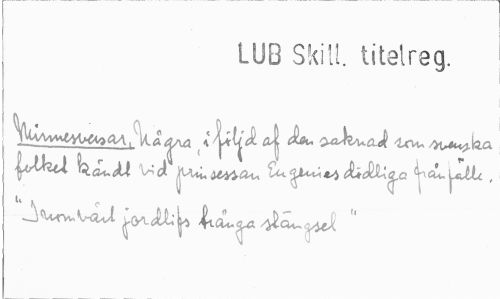 LUB Skill. titelreg.
Minnesversar, Några, i följd af den saknad som svenska
folket kändt vid prinsessan Eugenies dödliga frånfälle.
"Inom vårt jordlifs trånga stängsel"